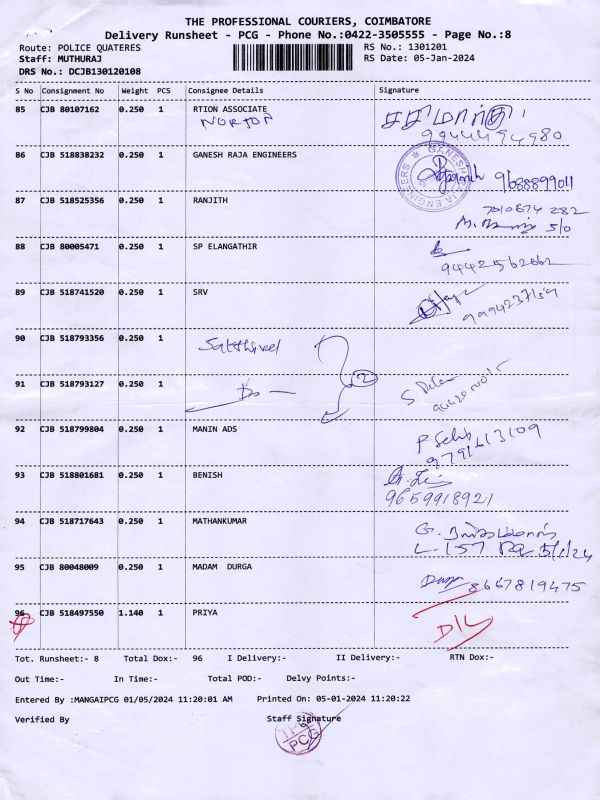 THE PROFESSIONAL COURIERS, COIMBATORE
Delivery Runsheet - PCG - Phone No.:0422-3505555 - Page No.:8
Route: POLICE QUATERES RS No.: 1301201
Staff: MUTHURAJ RS Date: 05-Jan-2024
DRS No.: DCJB130120108
S No Consignment No Weight PCS Consignee Details Signature
85 CJB 80107162 0.250 1 RTION ASSOCIATE
NORTOP
9944494980
86 CJB 518838232 0.250 1 GANESH RAJA ENGINEERS
9688899011
87 CJB 518525356 0.250 1 RANJITH
S/O
88 CJB 80005471 0.250 1 SP ELANGATHIR
89 CJB 518741520 0.250 1 SRV
90 CJB 518793356 0.250 1
Satthivel
91 CJB 518793127 0.250 1
2
92 CJB 518799804 0.250 1 MANIN ADS
9791613109
93 CJB 518801681 0.250 1 BENISH
9659918921
94 CJB 518717643 0.250 1 MATHANKUMAR
5/1/24
95 CJB 80048009 0.250 1 MADAM DURGA
8667819475
96 CJB 518497550 1.140 1 PRIYA
D/L
Tot. Runsheet:- 8 Total Dox:- 96 I Delivery:- II Delivery:- RTN Dox:-
Out Time:- In Time:- Total POD:- Delvy Points:-
Entered By :MANGAIPCG 01/05/2024 11:20:01 AM Printed On: 05-01-2024 11:20:22
Verified By Staff Signature
PCG